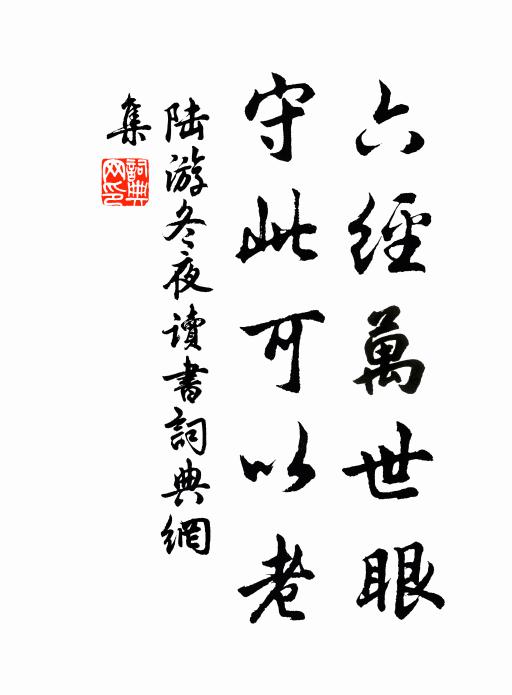 六經萬世眼
守此可以老
陸游冬夜讀書詞典網
集
詞典
网印